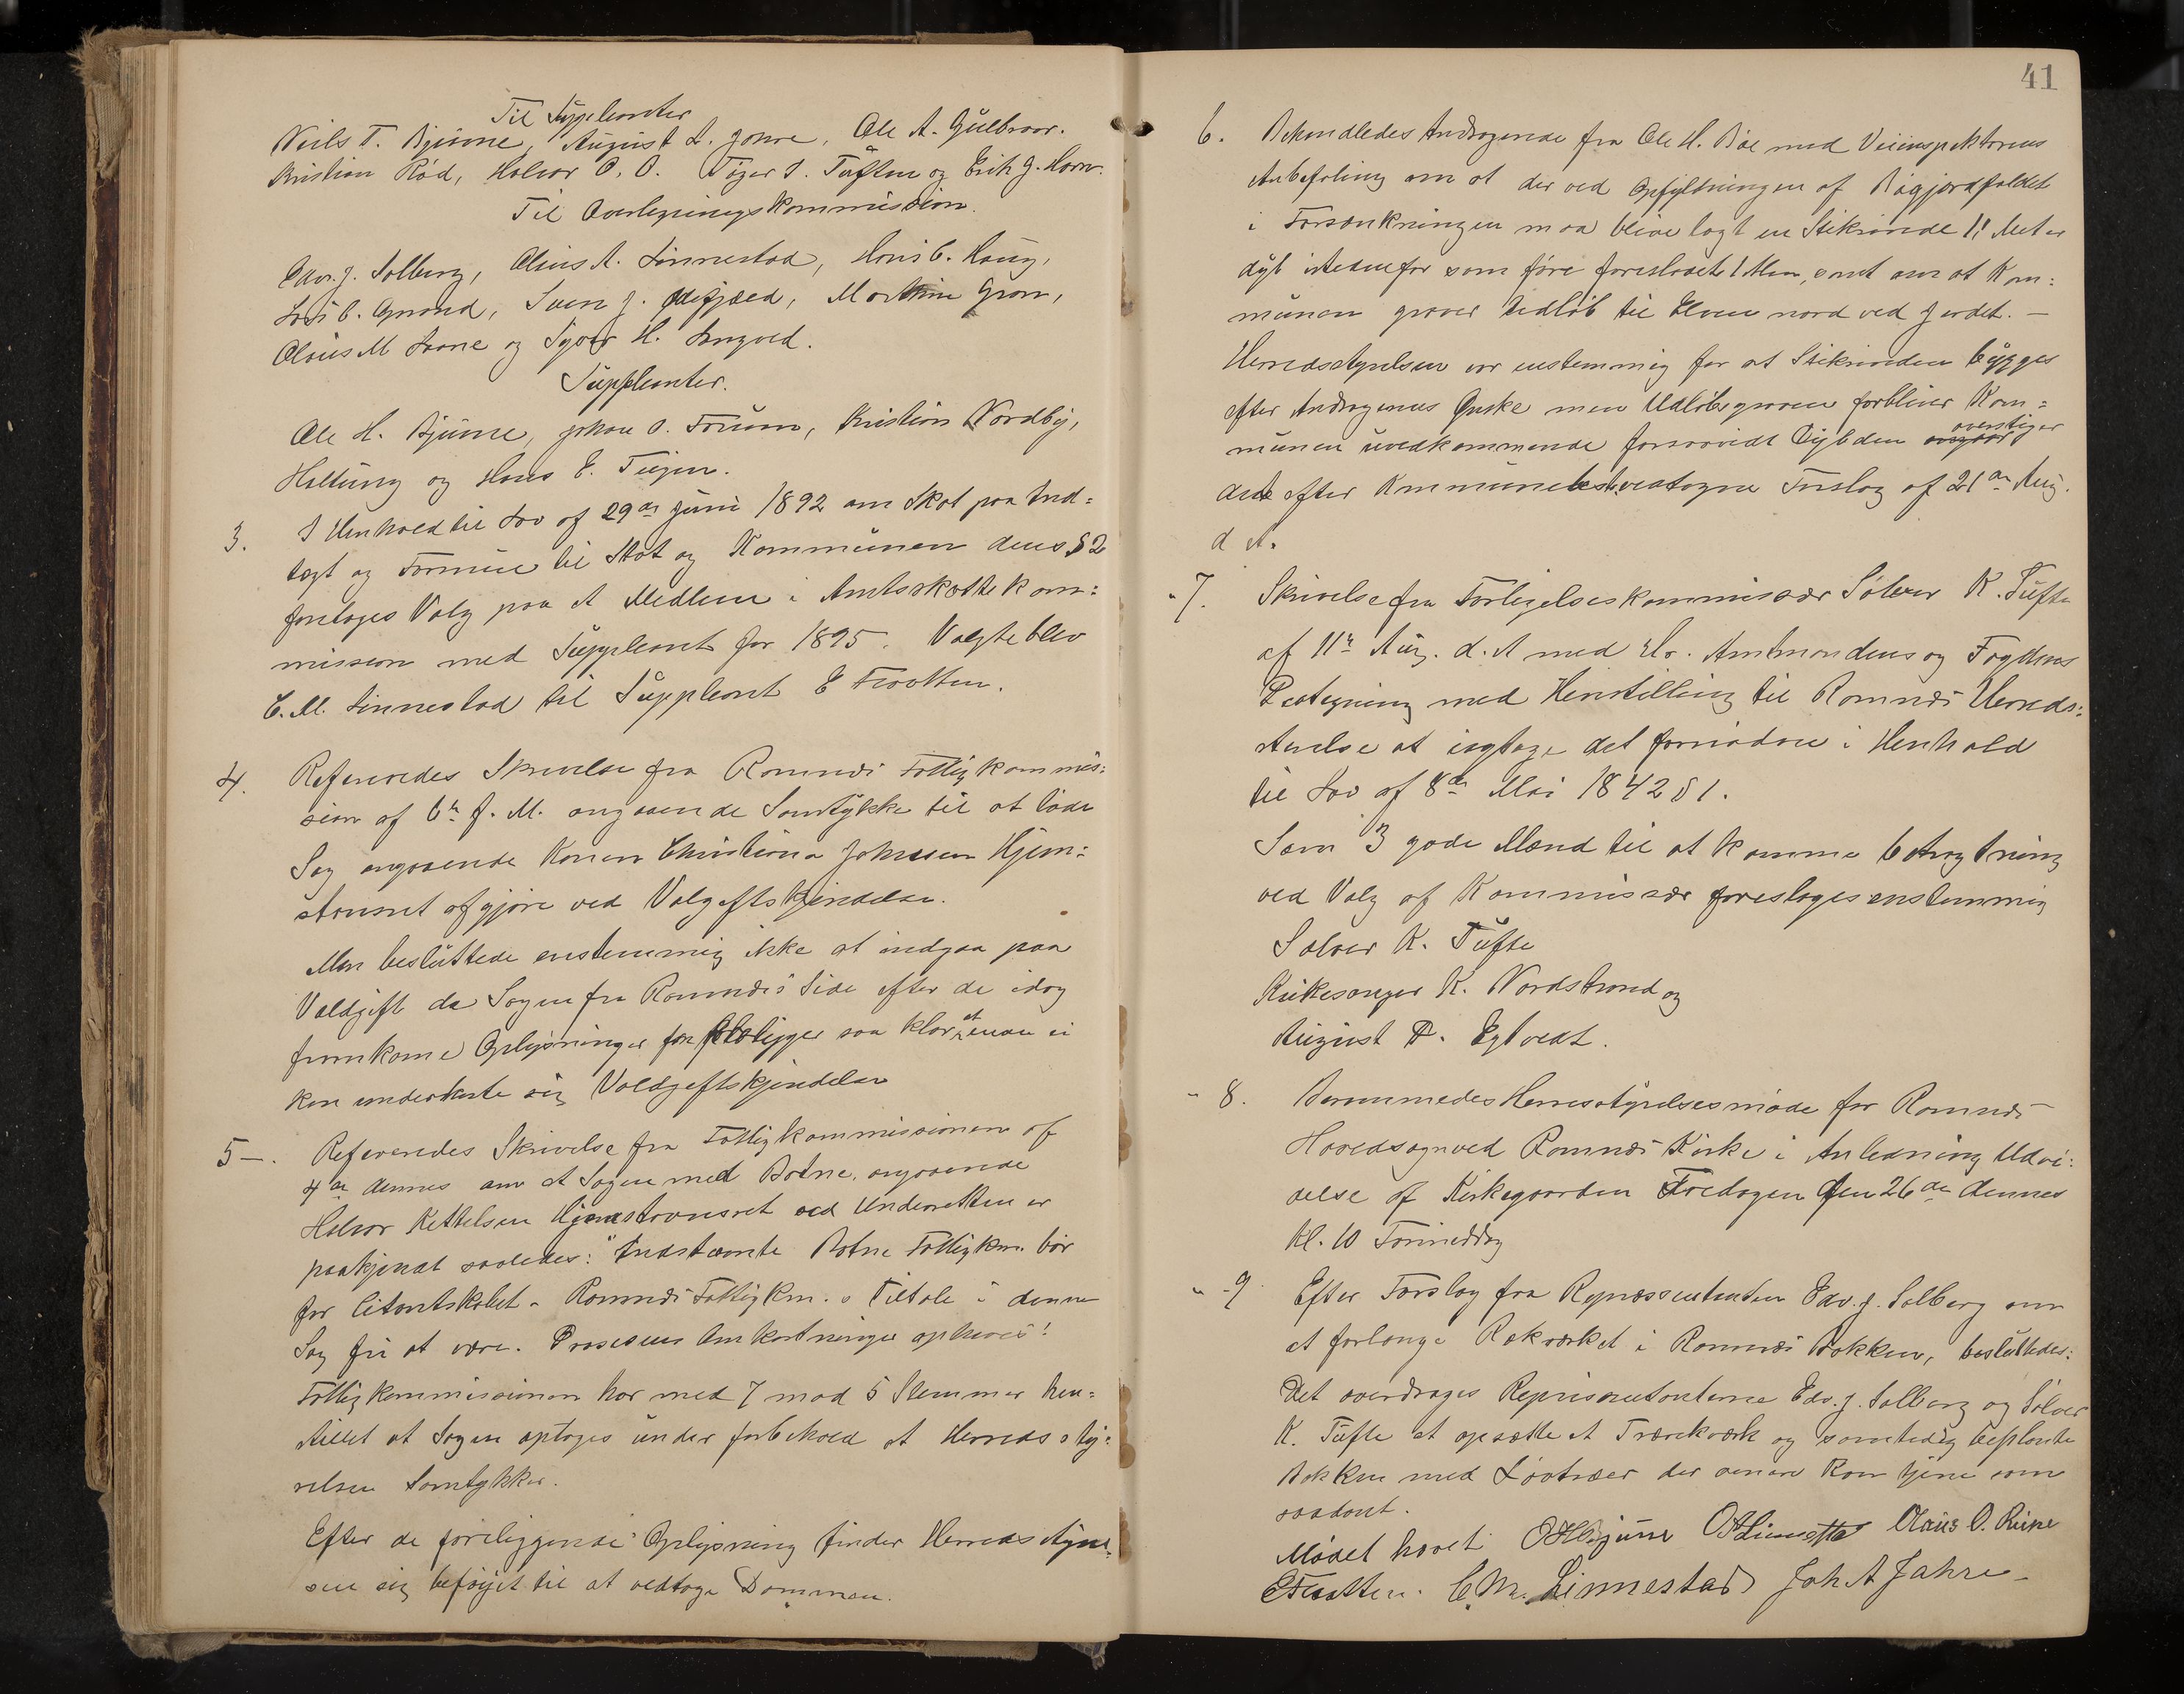 Til Suppleanter
Niels T. Bjunne, August L. Jonre, Ole A. Gulbraar.
Kristian Rød, Halvor O. O. Tøger O. Tuften og Erik J. Horn.
Til Overligningskommission.
Edv. J. Solberg, Olaus A. Linnestad, Hans C. Haug,
C. Grand, Sven J. Martin Gran,
Olaus M Laane og Syver H. Langved.
Suppleanter.
Ole H. Bjunne, Johan O. Fossum, Kristian Nordby,
Holtung og Hans E. Tiejen.
3. I Henhold til Lov af 29de Juni 1892 om Skat paa Ind=
tægt og Formue til Stat og Kommunen dens § 2
foretoges Valg paa et Medlem i Amtsskattekom=
mission med Suppleant for 1895. Valgte blev
C. M. Linnestad til Suppleant E Traatten.
4. Refereredes Skrivelse fra Ramnæs Fattigkommis=
sion af 6te f. M. angaaende Samtykke til at lade
Sag angaaende Konen Christiana Johnsen Hjem=
stavnsret afgjøre ved Volgiftskjendelse.
Man besluttede enstemmig ikke at indgaa paa
Voldgift da Sagen fra Ramnæs Side efter de idag
fremkomne Oplysninger foreligger saa klar at man ei
kan underkaste sig Voldgiftskjendelse
5—. Refereredes Skrivelse fra Fattigkommissionen af
4de dennes om at Sagen med Botne, angaaende
Halvor Kettelsen Hjemstavnsret ved Underretten er
paakjendt saaledes: "Indstævnte Botne Fattigkm. bør
for Citantskabet - Ramnæs Fattigkm.s Tiltale i denne
Sag fri at være. Prosesens Omkostninger ophæves!
Fattigkommissionen har med 7 mod 5 Stemmer hen=
stillet at Sagen optages under forbehold at Herredssty=
relsen Samtykker.
Efter de foreliggende Oplysning finder Herredsstyrel=
sen sig beføjet til at vedtage Dommen.
41
6. Behandledes Andragende fra Ole H. Bøe med Veiinspektørens
Anbefaling om at der ved Opfyldningen af Bøgjordfaldet
i Forsænkningen maa blive lagt en Stikrende 1! Meter
dyb istedenfor som føre foreslaaet 1 Men, samt om at Kom=
munen graver Udløb til Elven nord ved Jordet. —
Herredsstyrelsen var enstemmig for at Stikrenden bygges
efter Andragerens Ønske men Udløbsgraven forbliver Kom=
munen uvedkommende forsaavidt Dybden overstiger
det efter Kommunebestyrelsens Forslag af 21de Aug.
d A.
"7. Skrivelse fra Forligelseskommissær Sølver K. Tufte
af 11te Aug. d. A med Hr. Amtmandens og Fogdens
Paategning med Henstilling til Ramnæs Herreds=
styrelse at iagtage det fornødne i Henhold
til Lov af 8de Mai 1842 § 1.
Som 3 gode Mænd til at komme betragtning
ved Valg af Kommissær foreslages enstemmig
Sølver K. Tufte
Kirkesanger K. Nordstrand og
August A. Egtvedt.
" 8. Berammedes Herresstyrelsesmøde for Ramnæs
Hovedsogn ved Ramnæs Kirke i Anledning Udvi=
delse af Kirkegaarden Fredagen den 26de dennes
Kl. 10 Formiddag
" 9 Efter Forslag fra Repræssentanten Edv. J. Solberg om
at forlænge Rækværket i Ramnæs Bakken, besluttedes:
Det overdrages Repræsentanterne Edv. J. Solberg og Sølver
K. Tufte at opsætte et Trærekværk og samtidig beplante
Bakken med Løvtræer der senere kan tjene som
saadant.
Mødet hævet. O H Bjunne Olaus O. Ruine
E Traatten. C. M. Linnestad Joh A Jahre